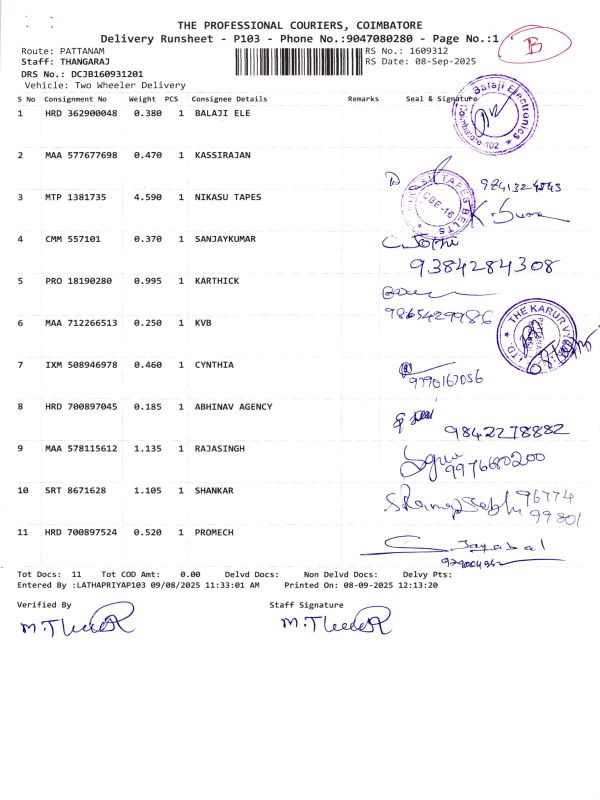 THE PROFESSIONAL COURIERS, COIMBATORE
Delivery Runsheet - P103 - Phone No.:9047080280 - Page No.:1
B
Route: PATTANAM RS No.: 1609312
Staff: THANGARAJ RS Date: 08-Sep-2025
DRS No.: DCJB160931201
Vehicle: Two Wheeler Delivery
S No Consignment No Weight PCS Consignee Details Remarks Seal & Signature
1 HRD 362900048 0.380 1 BALAJI ELE
Balaji Electronics
2 MAA 577677698 0.470 1 KASSIRAJAN
3 MTP 1381735 4.590 1 NIKASU TAPES
NIKASU TAPES BELTS CBE-16
4 CMM 557101 0.370 1 SANJAYKUMAR
C. Jothi
9384284308
5 PRO 18190280 0.995 1 KARTHICK
9865429986
6 MAA 712266513 0.250 1 KVB
THE KARUR LTD.
7 IXM 508946978 0.460 1 CYNTHIA
9790167056
8 HRD 700897045 0.185 1 ABHINAV AGENCY
9842278882
9 MAA 578115612 1.135 1 RAJASINGH
9976680200
10 SRT 8671628 1.105 1 SHANKAR
96774
99801
11 HRD 700897524 0.520 1 PROMECH
C. Jayabal
Tot Docs: 11 Tot COD Amt: 0.00 Delvd Docs: Non Delvd Docs: Delvy Pts:
Entered By :LATHAPRIYAP103 09/08/2025 11:33:01 AM Printed On: 08-09-2025 12:13:20
Verified By Staff Signature